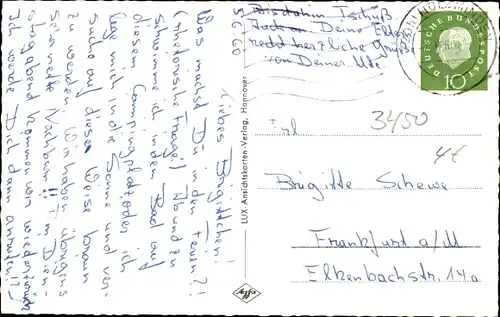 5.6.60
Liebes Brigittchen!
Was machst Du in den Ferien?!
(rhetorische Frage!) Ab und zu
schwimme ich im Bad auf
diesem Campingplatz, oder ich
lege mich in die Sonne und ver-
suche auf diese Weise braun
zu werden. Wir haben übrigens
sehr nette Nachbarn!!! Am Dien-
stagabend kommen wir wieder zurück
Ich werde Dich dann anrufen!? -
Bis dahin Tschüß
Auch an Deine Eltern
recht herzliche Grüße
von Deiner Ute
LUX-Ansichtskarten-Verlag, Hannover
HOLZMINDEN
DEUTSCHE BUNDESPOST
10
3450
4€
Frl
Brigitte Schewe
Frankfurt a/M
Elkenbachstr. 14a
Agfa